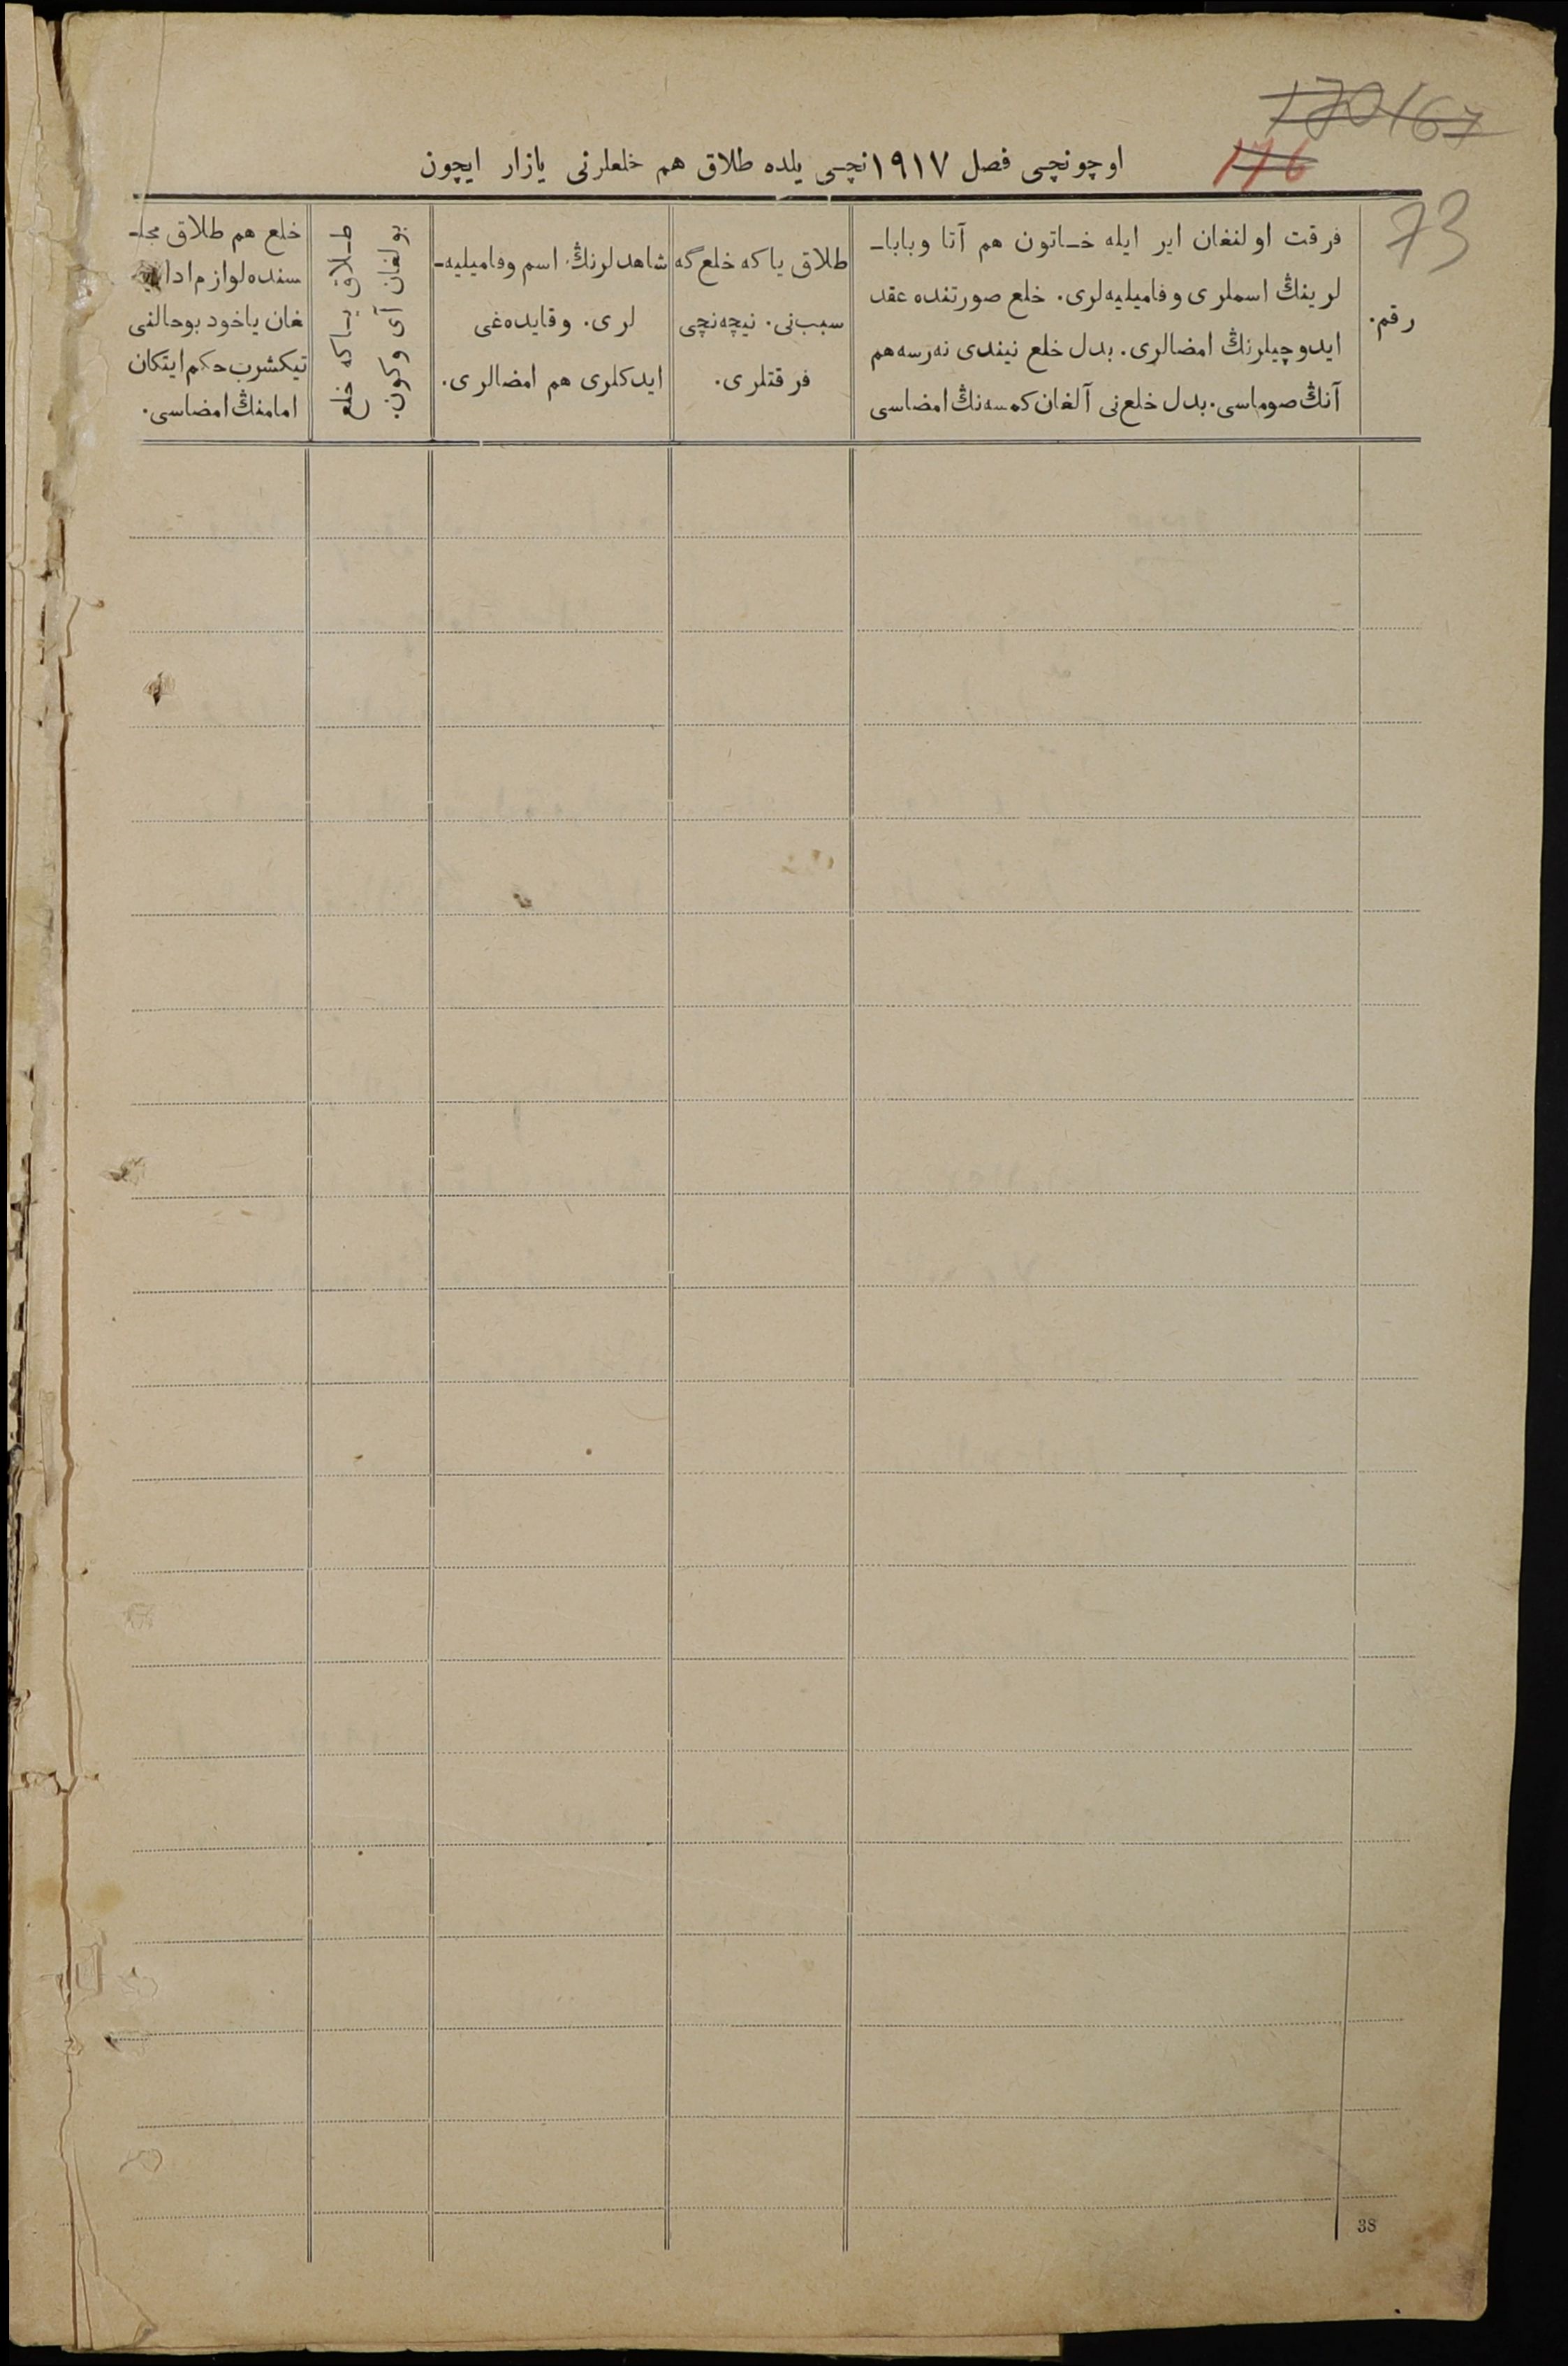 170 167
176
73
اوچونچی فصل ١٩١٧نچی یلده طلاق هم خلعلرنی یازار ایچون
رقم.
فرقت اولنغان ایر ایله خـاتون هم آتا وبابا-
لرینڭ اسملری وفامیلیه‌لری. خلع صورتنده عقد
ایدوچیلرنڭ امضالری. بدل خلع نیندی نه‌رسه هم
آنڭ صوماسی. بدل خلع‌نی آلغان کمسه‌نڭ امضاسی
طلاق یاکه خلع‌گه
سبب‌نی. نیچه‌نچی
فرقتلری.
شاهدلرنڭ اسم وفامیلیه-
لری. وقایده‌غی
ایدکلری هم امضالری.
طـلاق یـاکه خلع
بولغان آی وکون.
خلع هم طلاق مجلـ
سنده لوازم ادا
غان یاخود بوحالنی
تیکشرب حکم ایتکان
امامنڭ امضاسی.
38